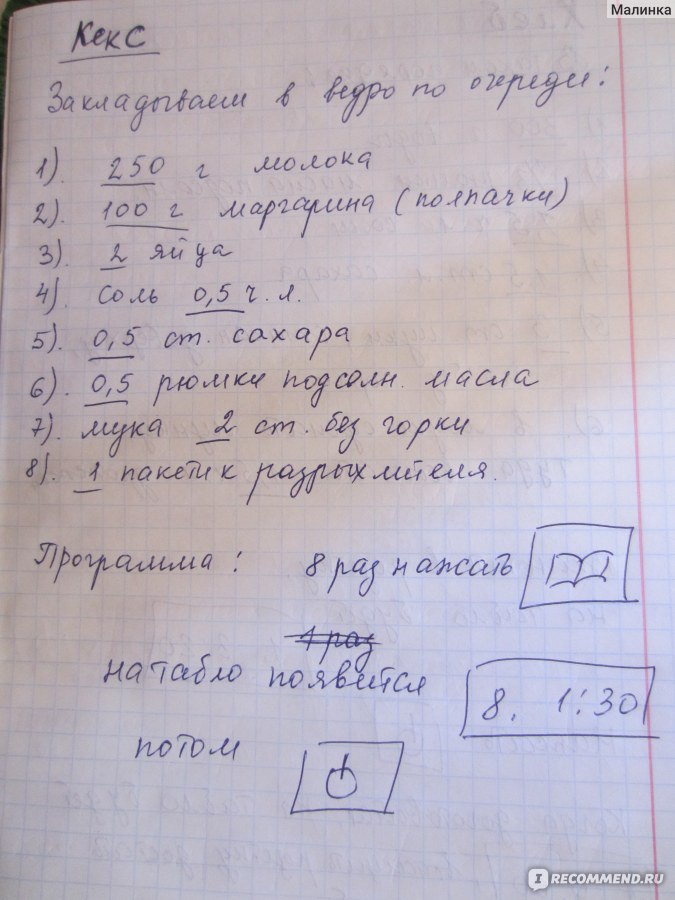 Малинка
Кекс
Закладываем в ведро по очереди:
1). 250 г молока
2). 100 г маргарина (полпачки)
3). 2 яйца
4). соль 0,5 ч. л.
5). 0,5 ст. сахара
6). 0,5 рюмки подсолн. масла
7). мука 2 ст. без горки
8). 1 пакетик разрыхлителя.
Программа: 8 раз нажать
1 раз
на табло появится
8. 1:30
потом
I RECOMMEND.RU